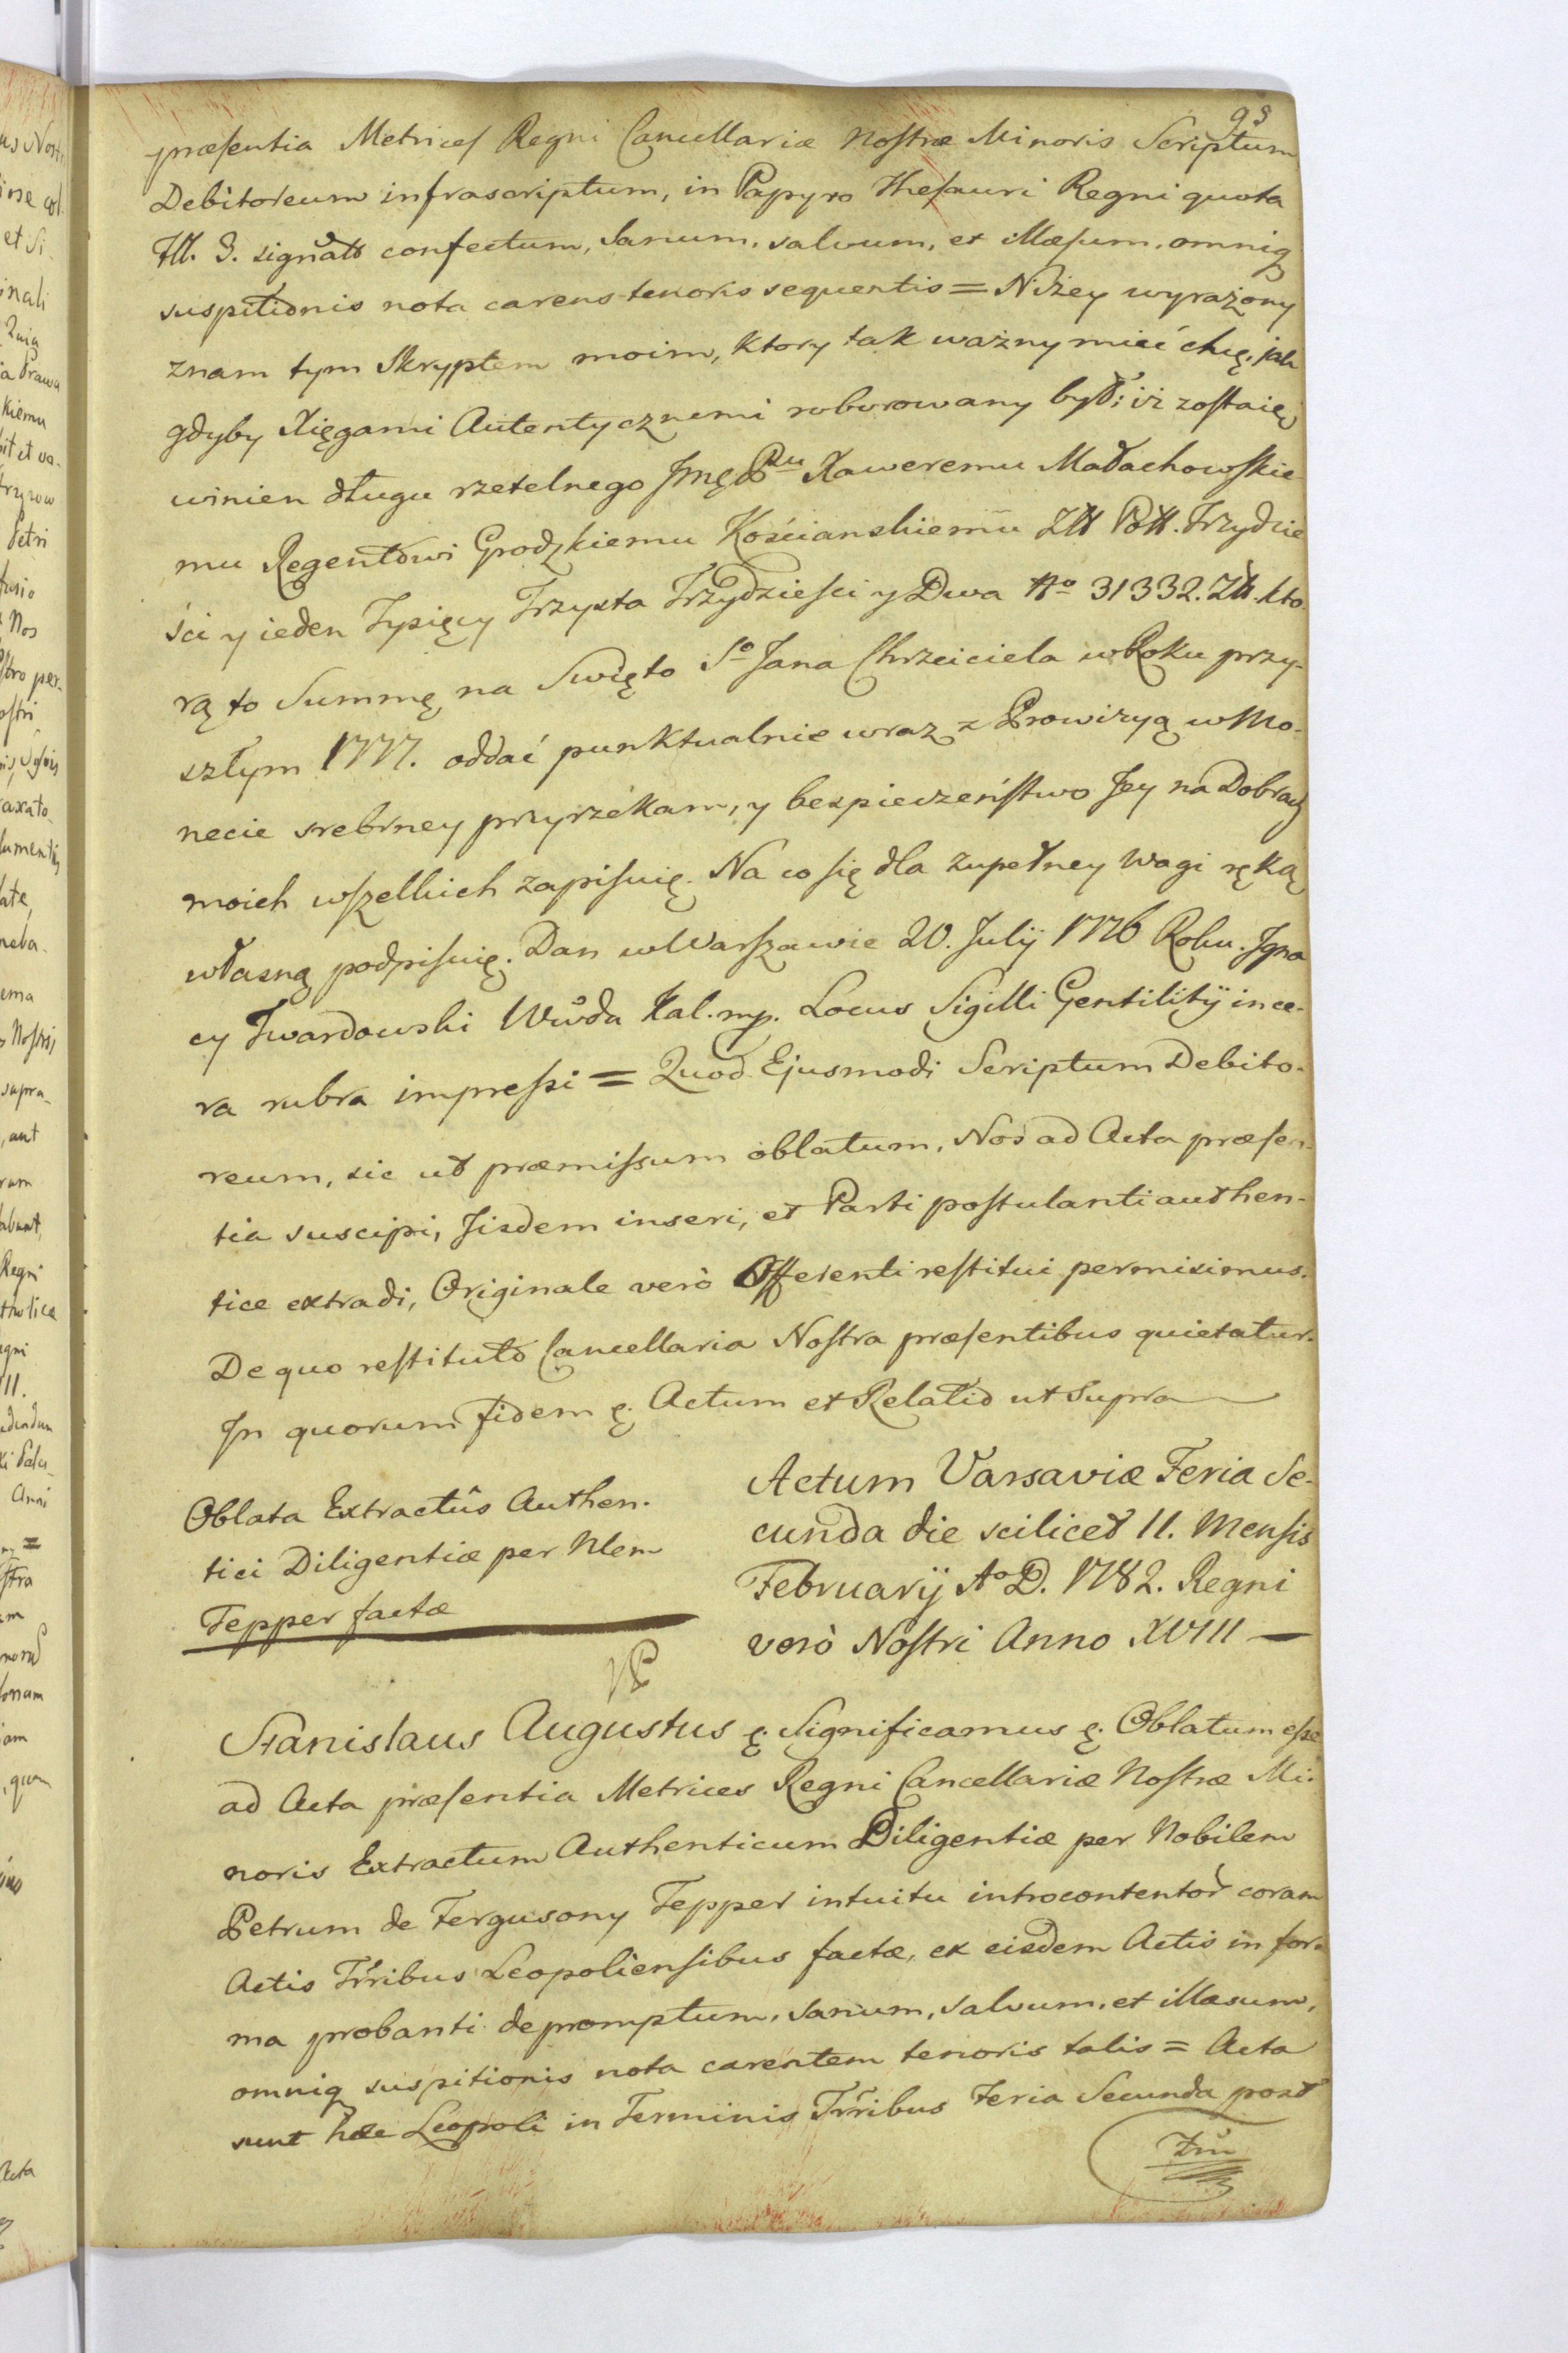 93
præsentia Metrices Regni Cancellariæ Nostræ Minoris Scriptum
Debitoreum infrascriptum, in Papyro Thesauri Regni quota
Fll. 3. signato confectum, sanum, salvum, et illæsum, omniq
suspitionis nota carens tenoris sequentis = Niżey wyrażony
znam tym Skryptem moim, ktory tak ważny mieć chcę, jak
gdyby Xięgami Autentycznemi roborowany był: iż zostaię
winien długu rzetelnego Jmę Pnu Xaweremu Małachowskie-
mu Regentowi Grodzkiemu Kościanskiemu Złł Poll. Trzydzie
ści y ieden Tysięcy Trzysta Trzydzieści y Dwa No 31332. Złł. kto-
rą to Summę na Swięto So Jana Chrzciciela w Roku przy-
szłym 1777. oddać punktualnie wraz z Prowizyą w Mo-
necie srebrney przyrzekam, y bespieczeństwo Jey na Dobrach
moich wszelkich zapisuię. Na co się dla zupełney wagi ręką
własną podpisuię. Dan w Warszawie 20. Julij 1776 Roku. Igna
cy Twardowski Wwda Kal. mp. Locus Sigilli Gentilitij in ce-
ra rubra impressi = Quod Ejusmodi Scriptum Debito-
reum, sic ut præmissum oblatum, Nos ad Acta præsen-
tia suscipi, Iisdem inseri, et Parti postulanti authen-
tice extradi, Originale verò Offerenti restitui permisimus.
De quo restituto Cancellaria Nostra præsentibus quietatur.
In quorum fidem ę. Actum et Relatio ut supra
Oblata Extractûs Authen-
tici Diligentiæ per Nlem
Tepper factæ
Actum Varsaviæ Feria Se-
cunda die scilicet 11. Mensis
Februarij Ao D. 1782. Regni
verò Nostri Anno XVIII —
Stanislaus Augustus ę. Significamus ę. Oblatum esse
ad Acta præsentia Metrices Regni Cancellariæ Nostræ Mi-
noris Extractum Authenticum Diligentiæ per Nobilem
Petrum de Fergusony Tepper intuitu introcontentor coram
Actis Trribus Leopoliensibus factæ, ex eisdem Actis in for-
ma probanti depromptum, sanum, salvum, et illæsum,
omniq suspitionis nota carentem tenoris talis = Acta
sunt hæc Leopoli in Terminis Trribus Feria Secunda post